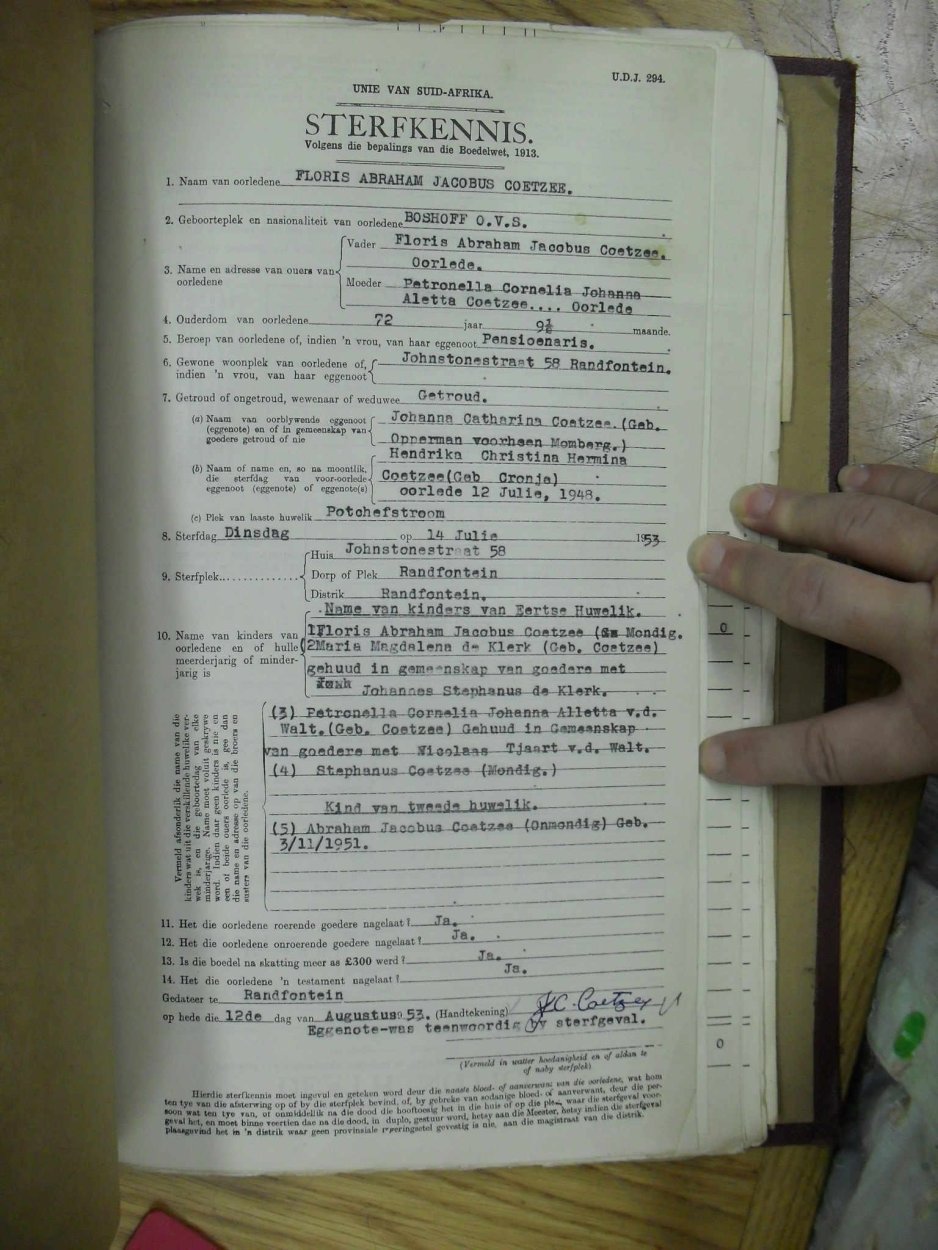 U.D.J. 294.
UNIE VAN SUID-AFRIKA.
STERFKENNIS.
Volgens die bepalings van die Boedelwet, 1913.
1. Naam van oorledene FLORIS ABRAHAM JACOBUS COETZEE.
2. Geboorteplek en nasionaliteit van oorledene BOSHOFF O.V.S.
3. Name en adresse van ouers van oorledene
Vader Floris Abraham Jacobus Coetzee.
Oorlede.
Moeder Petronella Cornelia Johanna
Aletta Coetzee.... Oorlede
4. Ouderdom van oorledene 72 jaar 9½ maande.
5. Beroep van oorledene of, indien 'n vrou, van haar eggenoot Pensioenaris.
6. Gewone woonplek van oorledene of, Johnstonestraat 58 Randfontein.
indien 'n vrou, van haar eggenoot
7. Getroud of ongetroud, wewenaar of weduwee Getroud.
(a) Naam van oorblywende eggenoot Johanna Catharina Coetzee.(Geb.
(eggenote) en of in gemeenskap van
goedere getroud of nie Opperman voorheen Momberg.)
Hendrika Christina Hermina
(b) Naam of name en, so na moontlik,
die sterfdag van voor-oorlede Coetzee(Geb Cronje)
eggenoot (eggenote) of eggenote(s) oorlede 12 Julie, 1948.
(c) Plek van laaste huwelik Potchefstroom
8. Sterfdag Dinsdag op 14 Julie 1953
9. Sterfplek............
Huis Johnstonestraat 58
Dorp of Plek Randfontein
Distrik Randfontein.
Name van kinders van Eertse Huwelik.
10. Name van kinders van
oorledene en of hulle
meerderjarig of minder-
jarig is
1 Floris Abraham Jacobus Coetzee ( Mondig.
(2 Maria Magdalena de Klerk (Geb. Coetzee)
gehuud in gemeenskap van goedere met
Johannes Stephanus de Klerk.
Vermeld afsonderlik die name van die
kinders wat uit die verskillende huwelike ver-
wek is, en die geboortedag van elke
minderjarige. Name moet voluit geskrywe
word. Indien daar geen kinders is nie en
een of beide ouers oorlede is, gee dan
die name en adresse op van die broers en
susters van die oorledene.
(3) Petronella Cornelia Johanna Alletta v.d.
Walt.(Geb. Coetzee) Gehuud in Gemeenskap
van goedere met Nicolaas Tjaart v.d. Walt.
(4) Stephanus Coetzee (Mondig.)
Kind van tweede huwelik.
(5) Abraham Jacobus Coetzee (Onmondig) Geb.
3/11/1951.
11. Het die oorledene roerende goedere nagelaat? Ja.
12. Het die oorledene onroerende goedere nagelaat? Ja.
13. Is die boedel na skatting meer as £300 werd? Ja.
14. Het die oorledene 'n testament nagelaat? Ja.
Gedateer te Randfontein
op hede die 12de dag van Augustus 53. (Handtekening) J.C. Coetzee
Eggenote-was teenwoordig by sterfgeval.
(Vermeld in watter hoedanigheid en of aldan te
of naby sterfplek)
Hierdie sterfkennis moet ingevul en geteken word deur die naaste bloed- of aanverwant van die oorledene, wat hom
ten tye van die afsterwing op of by die sterfplek bevind, of, by gebreke van sodanige bloed- of aanverwant, deur die per-
soon wat ten tye van, of onmiddellik na die dood die hooftoesig het in die huis of op die plek, waar die sterfgeval voor-
geval het, en moet binne veertien dae na die dood, in duplo, gestuur word, hetsy aan die Meester, hetsy indien die sterfgeval
plaasgevind het in 'n distrik waar geen provinsiale regeringsetel gevestig is nie, aan die magistraat van die distrik.
0
0